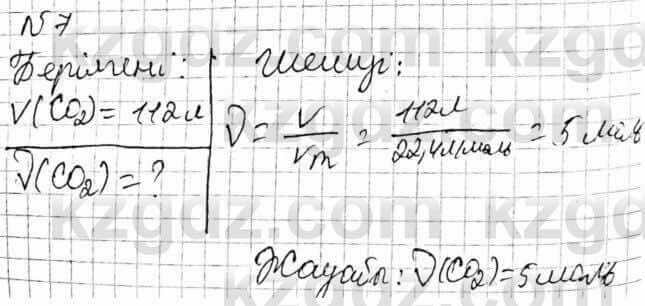 N7
Берілгені:
V(CO₂) = 112л
ν(CO₂) = ?
Шешуі:
ν = V/Vm = 112л/22,4л/моль = 5 моль
Жауабы: ν(CO₂) = 5 моль
kzgdz.com